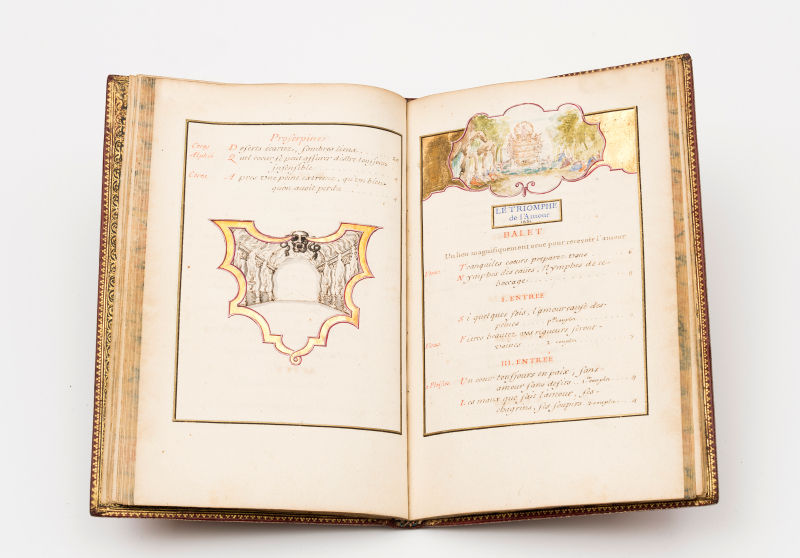 Proserpine
Ceres
Deserts écartez, sombres lieux
Alphée
Quel cœur se peut assurer d'estre toujours
insensible
Ceres
Apres une peine extreme, qu'un bien
qu'on avoit perdu
LE TRIOMPHE
de l'Amour
BALET
Un lieu magnifiquement orné pour recevoir l'amour
Venus
Tranquiles cœurs préparez vous 6
Nymphes des eaux, Nymphes de ce
boccage
I. ENTREE
Si quelques fois, l'amour cause des
peines
Fieres beautez, vos rigueurs seront
vaines
III. ENTREE
Un cœur toujours en paix, sans
amour sans desirs
Les maux que fait l'amour, ses
chagrins, ses soupirs